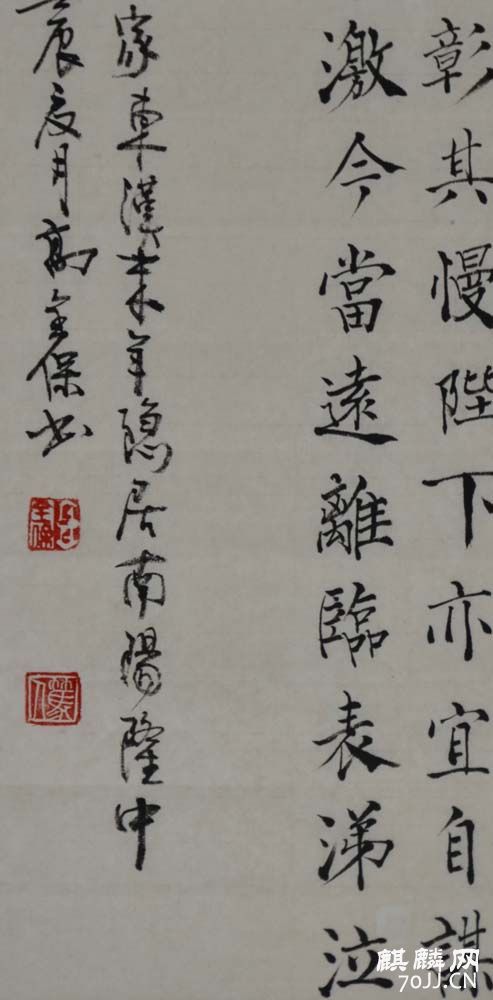 彰其慢陛下亦宜自諌
激今當遠離臨表涕泣
家車漢末年隱居南陽隆中
壬辰夏月高全保书
麒麟网
70JJ.CN